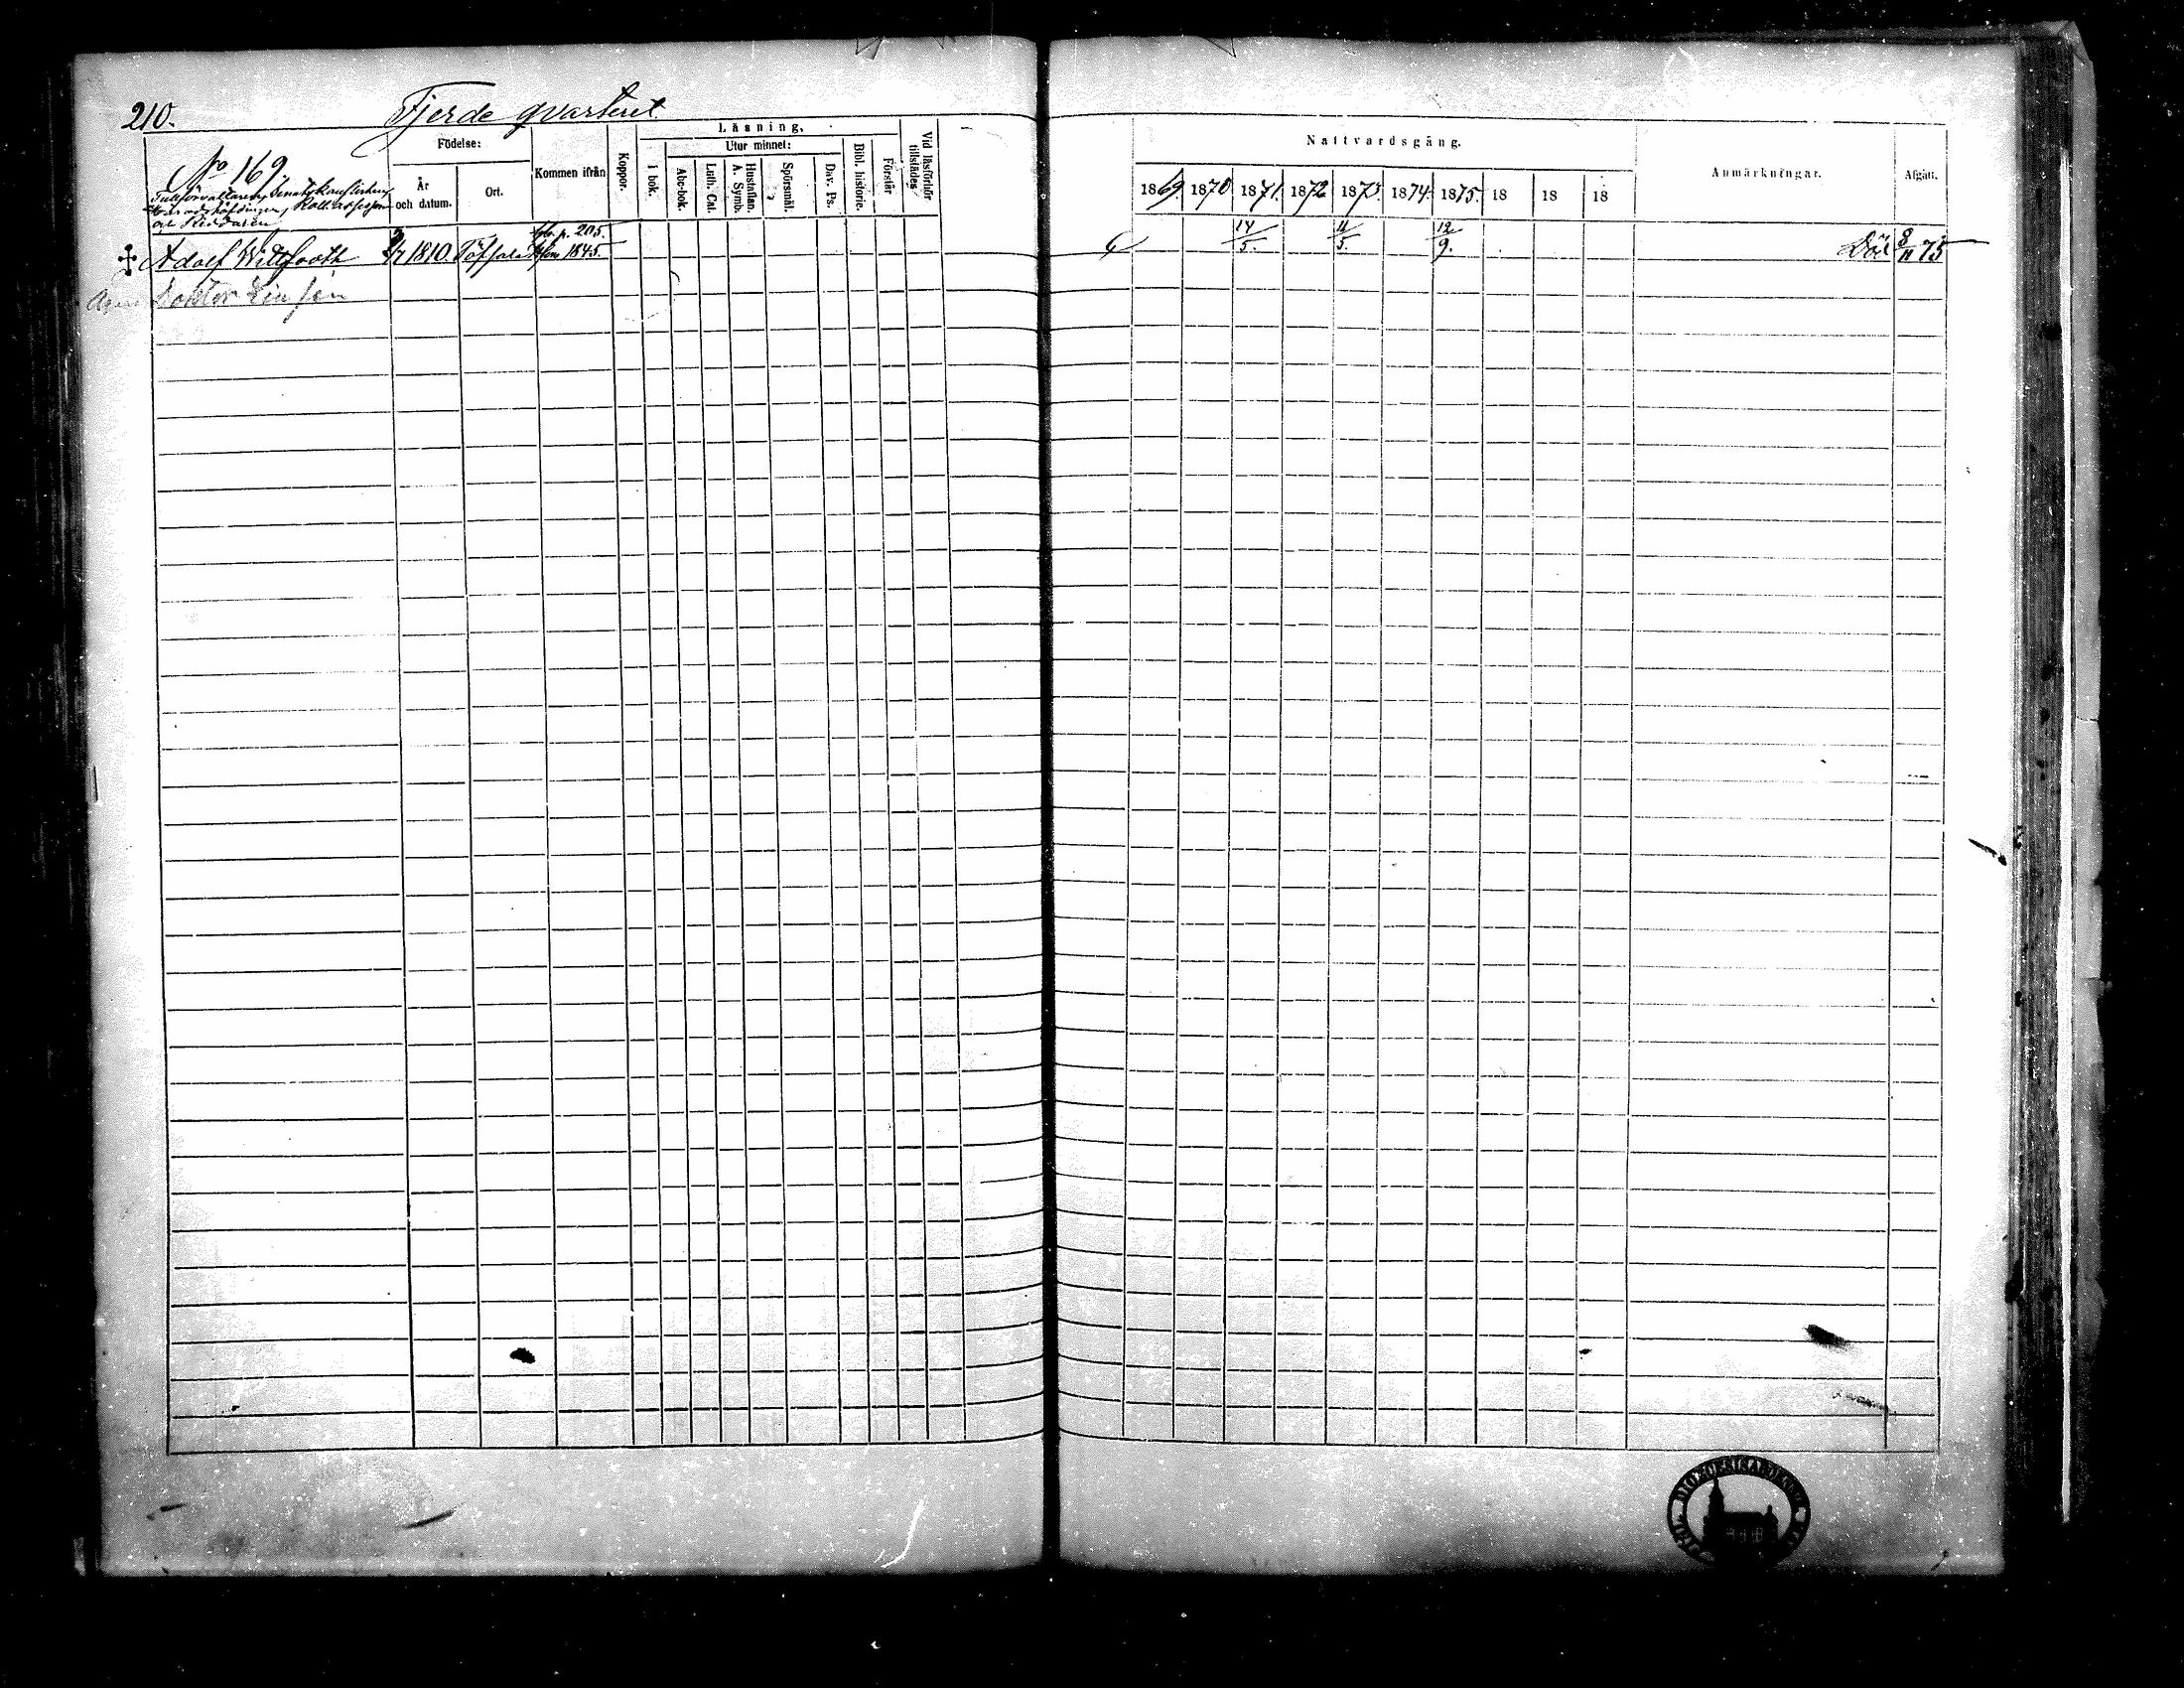 210.
Fjerde qvarteret
No 169
Tullförvaltaren, Senatskanslisten,
Häradshöfdingen, Koll. assessorn
och Riddaren
Födelse:
År
och datum.
Ort.
Kommen ifrån
Koppor.
Läsning.
I bok.
Utur minnet:
Abc-bok.
Luth. Cat.
Hustaflan.
A. Symb.
Spörsmål.
Dav. Ps.
Bibl. historie.
Förstår
Vid läsförhör
tillstädes
Nattvardsgång.
1869. 1870 1871. 1872 1873. 1874. 1875. 18 18 18
Anmärkningar.
Afgått.
p. 205.
Adolf Wittfooth 1810. Töfsala 1845. 14/5. 11/5. 12/9. Död 8/11 75
Doktor